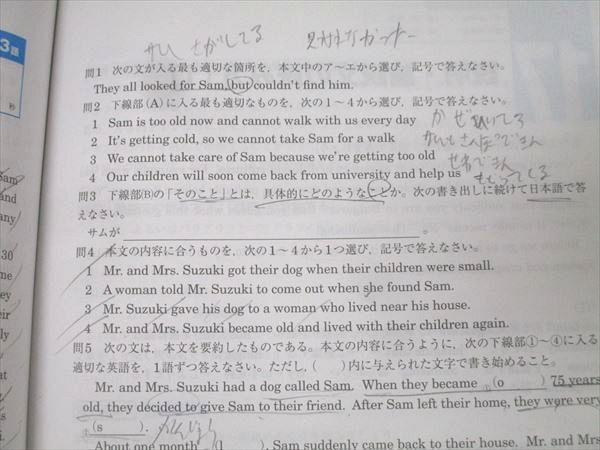 3語
秒
さがしてる
問1 次の文が入る最も適切な箇所を，本文中のア〜エから選び，記号で答えなさい。
They all looked for Sam, but couldn't find him.
問2 下線部(A)に入る最も適切なものを，次の1〜4から選び，記号で答えなさい。
1 Sam is too old now and cannot walk with us every day
2 It's getting cold, so we cannot take Sam for a walk
3 We cannot take care of Sam because we're getting too old
4 Our children will soon come back from university and help us
問3 下線部(B)の「そのこと」とは，具体的にどのようなことか。次の書き出しに続けて日本語で答
えなさい。
サムが 。
問4 本文の内容に合うものを，次の1〜4から1つ選び，記号で答えなさい。
1 Mr. and Mrs. Suzuki got their dog when their children were small.
2 A woman told Mr. Suzuki to come out when she found Sam.
3 Mr. Suzuki gave his dog to a woman who lived near his house.
4 Mr. and Mrs. Suzuki became old and lived with their children again.
問5 次の文は，本文を要約したものである。本文の内容に合うように，次の下線部①〜④に入る
適切な英語を，1語ずつ答えなさい。ただし，( )内に与えられた文字で書き始めること。
Mr. and Mrs. Suzuki had a dog called Sam. When they became ①(o ) 75 years
old, they decided to give Sam to their friend. After Sam left their home, they were very
②(s ).
About one month (l ), Sam suddenly came back to their house. Mr. and Mrs